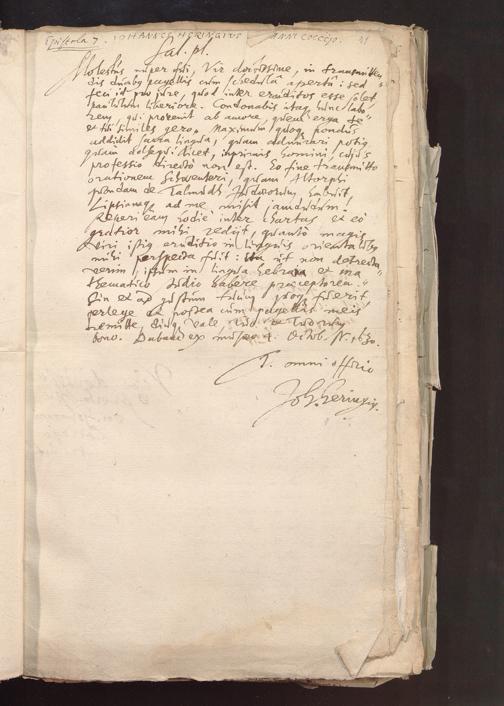 Epistola 7. IOHANNES HERINGIUS IOANNI COCCEIO. 21
Sal. pl.
Molestus nuper fui, Vir doctissime, in transmitten-
dis duabus pagellis cum schedula aperta: sed
feci id pro jure, quod inter eruditos esse solet
paululum liberiore. Condonabis itaq hunc labo-
rem, qui provenit ab amore, quem erga te
et tui similes gero. Maximum quoq pondus
addidit lingua, quam admirari potiq
quam assequi licet, inprimis homini, cujus
professio directo non est. Eo fine transmitto
orationem Schwenteri, quam Altorphi
quondam de Talmude Judaeorum habuit.
ad me misit jamdudum!
Reperi eam hodie inter chartas et eo
gratior mihi rediit, quanto magis
Viri istiq eruditio in linguis orientalibq
mihi perspecta fuit: ut non detrecta-
verim, ipsum in lingua hebraea et ma-
thematico studio habere praeceptorem.
fuerit,
perlege et postea cum pagellis meis
remitte, Vale
bono. ex museo 4. Octob. A. 1630.
T. omni officio
Joh. Heringiq.